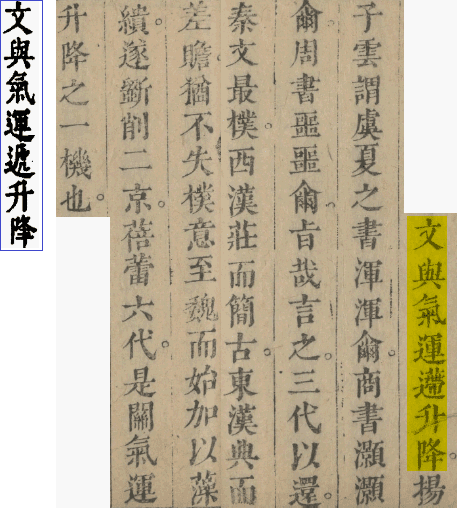 文與氣運遞升降
文與氣運遞升降。揚
子雲謂虞夏之書渾渾爾。商書灝灝
爾。周書噩噩爾。旨哉言之。三代以還。
秦文最樸。西漢莊而簡古。東漢典而
差贍。猶不失樸意。至魏而始加以藻
繢。遂斵削二京。蓓蕾六代。是關氣運
升降之一機也。